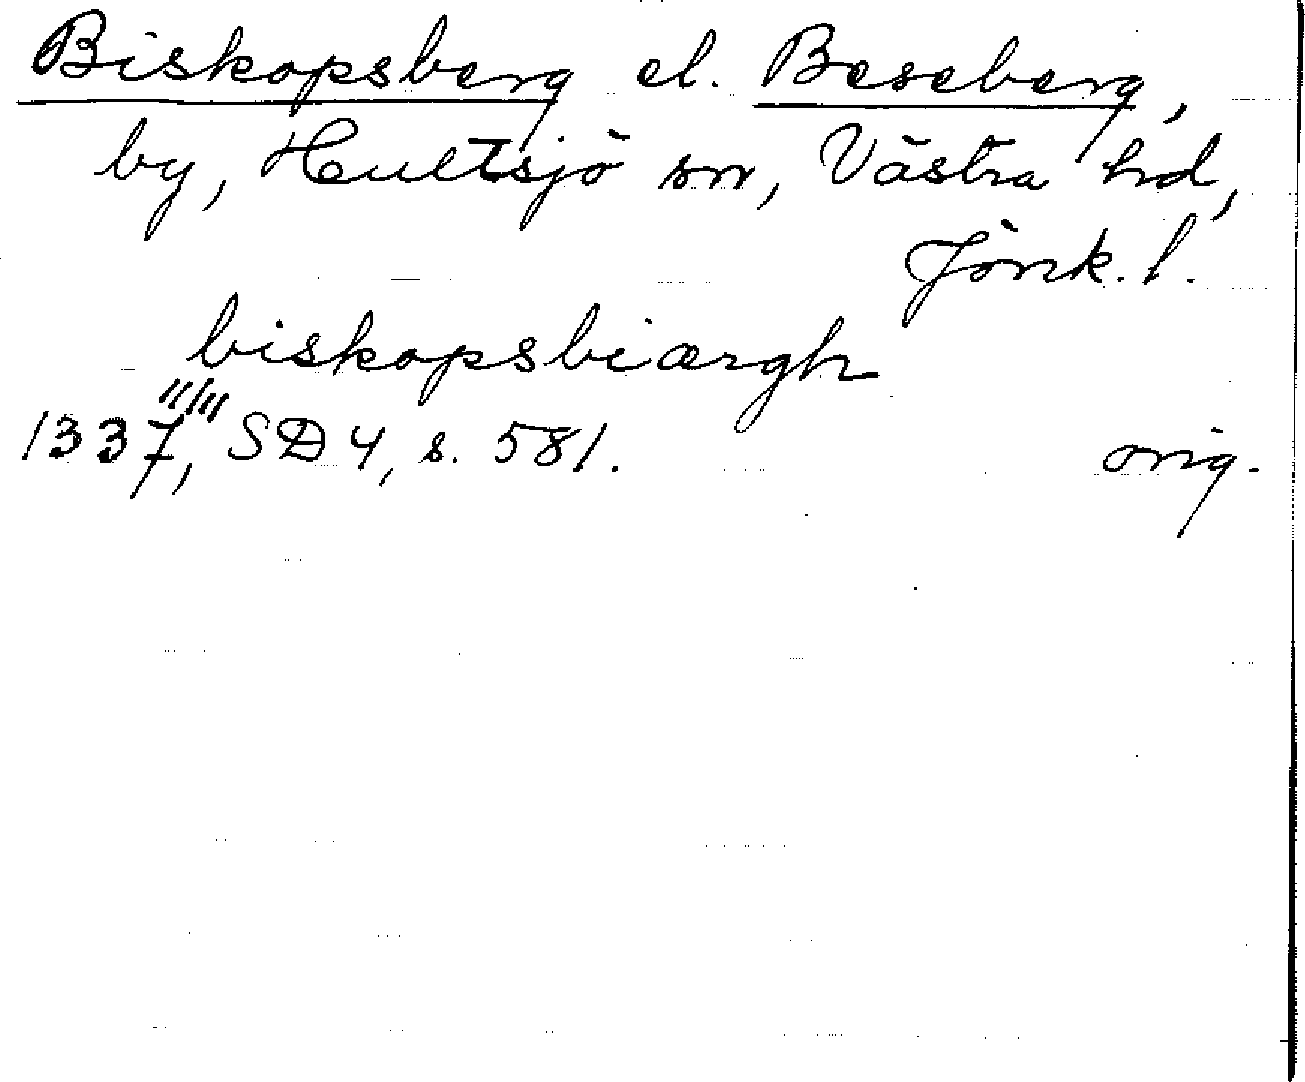 Biskopsberg el. Beseberg,
by, Hultsjö sn, Västra hd,
Jönk. l.
biskopsbiærgh
1337 11/11, SD 4, s. 581. orig.